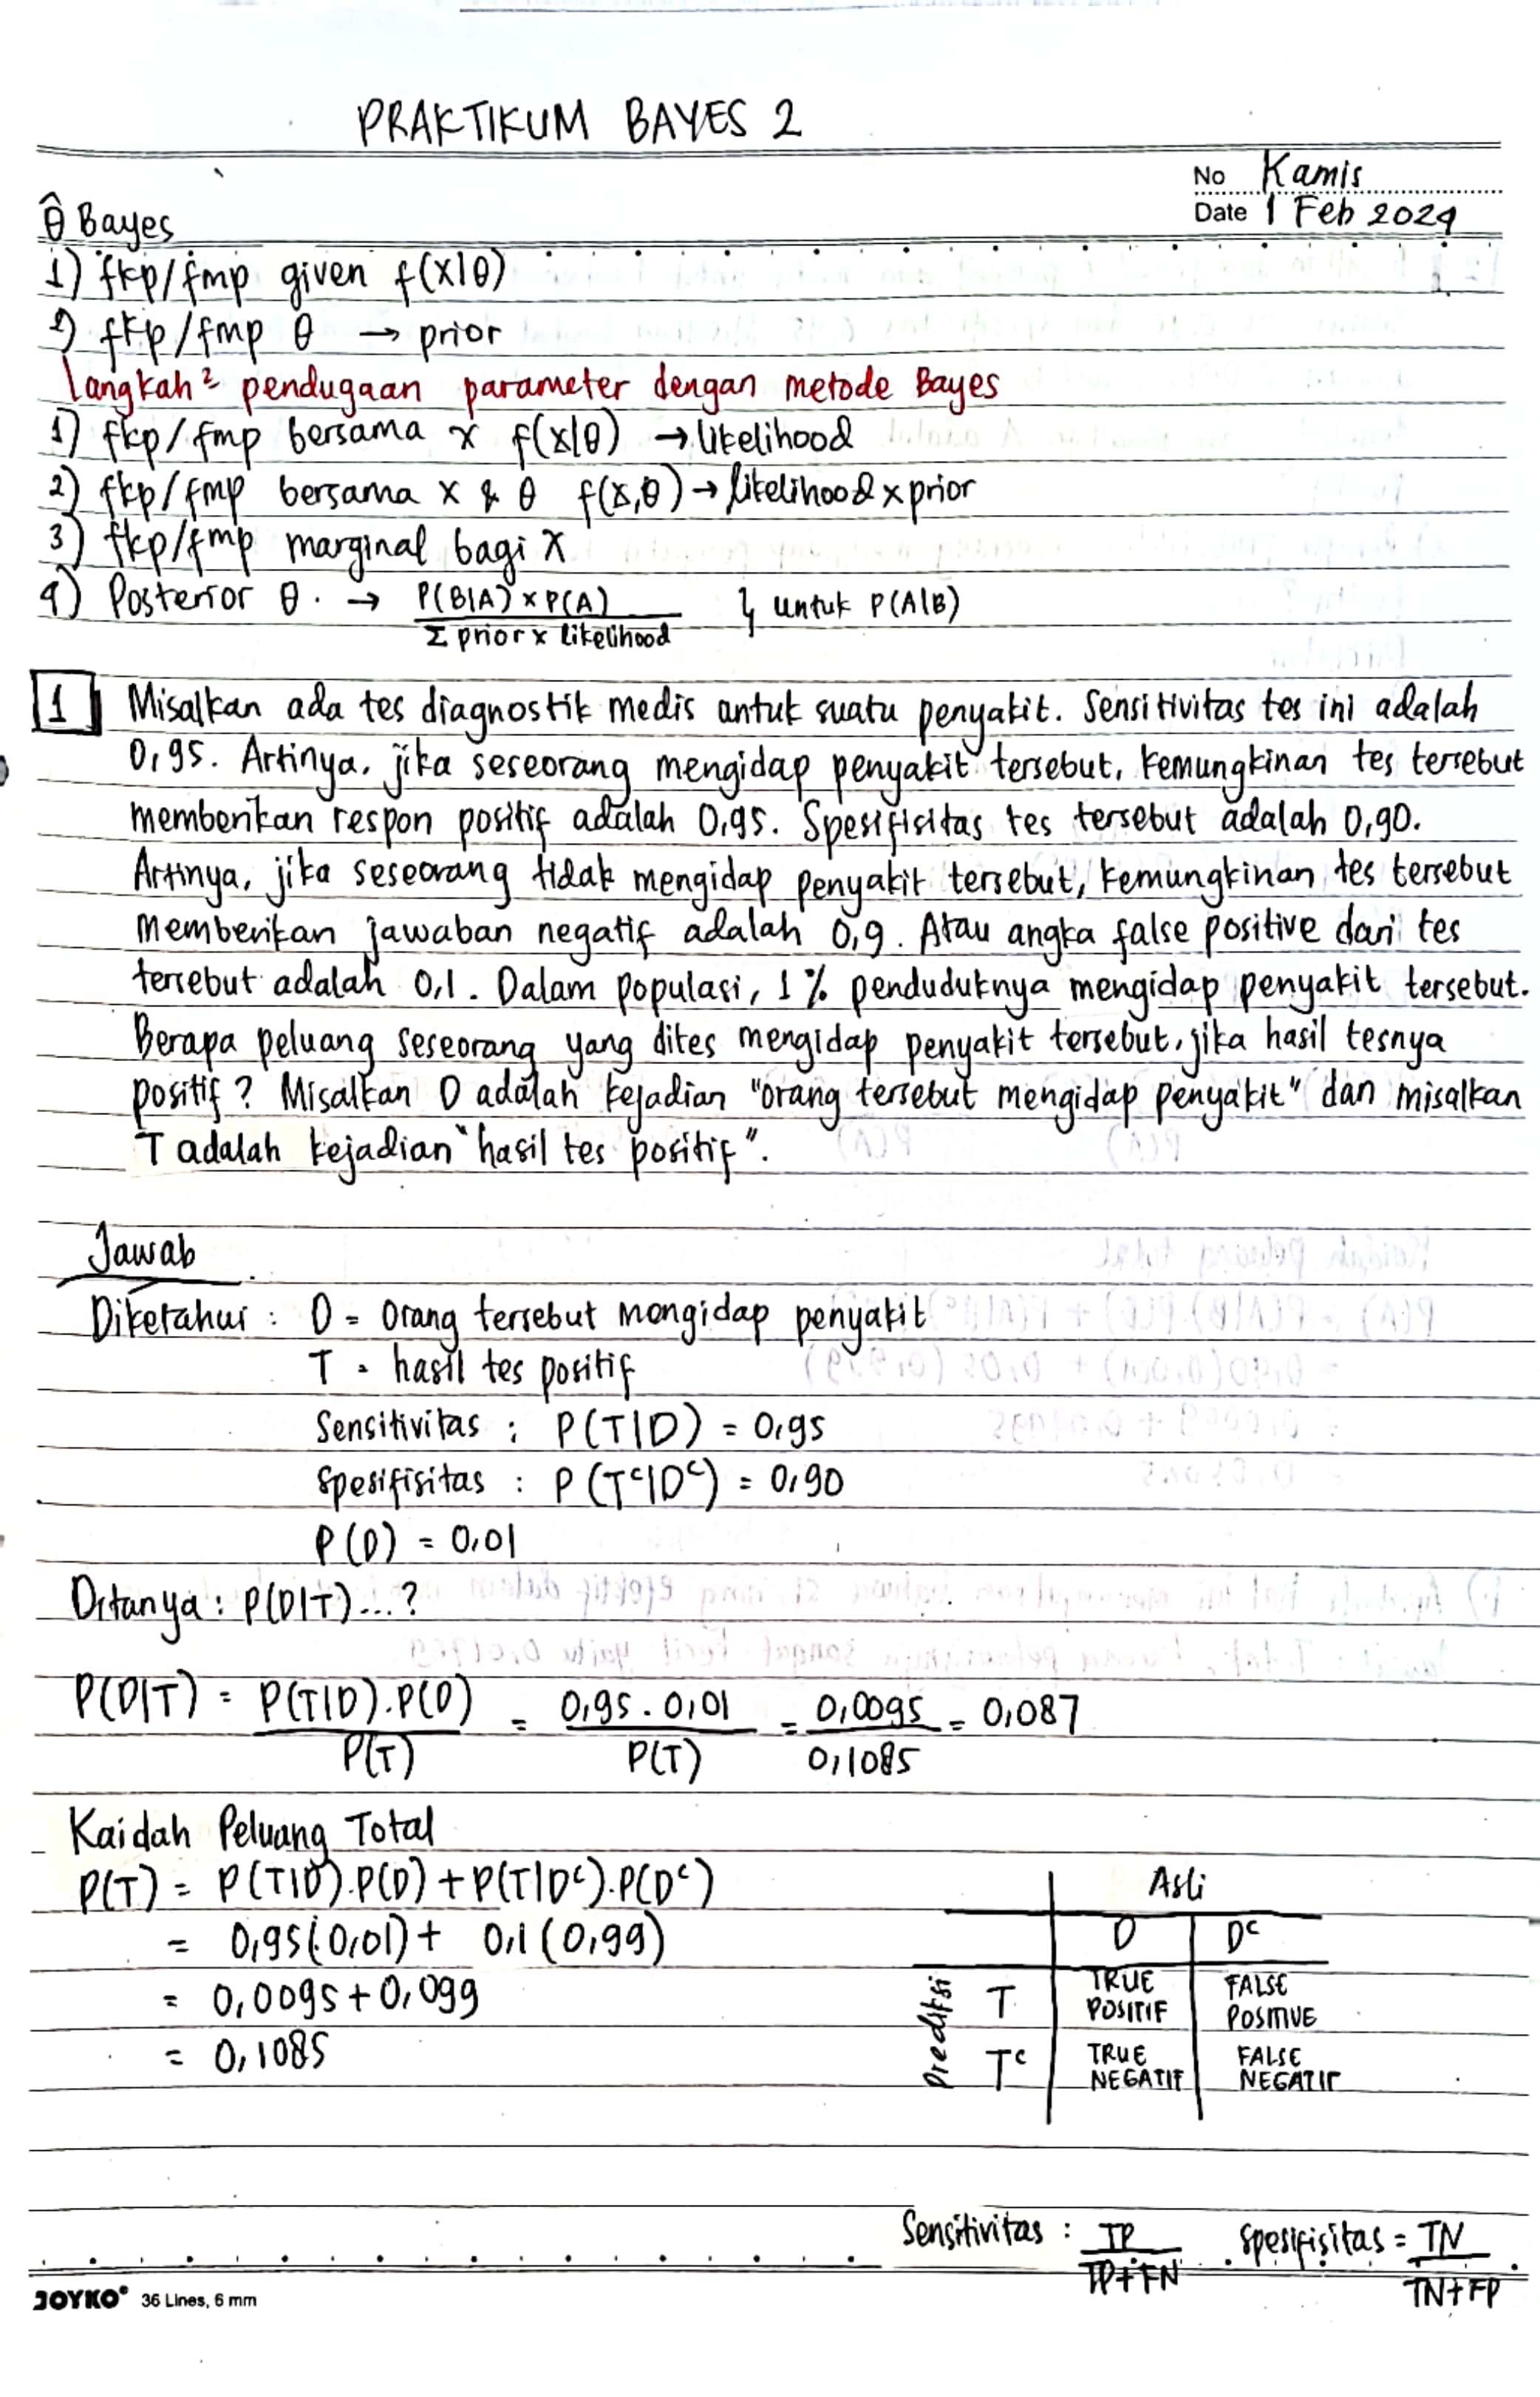 PRAKTIKUM BAYES 2
No Kamis
Date 1 Feb 2024
θ̂ Bayes
1) fkp/fmp given f(x|θ)
2) fkp/fmp θ → prior
Langkah² pendugaan parameter dengan metode Bayes
1) fkp/fmp bersama x f(x|θ) → likelihood
2) fkp/fmp bersama x & θ f(x,θ) → likelihood x prior
3) fkp/fmp marginal bagi x
4) Posterior θ. → P(B|A) × P(A) / Σ prior x likelihood } untuk P(A|B)
1 Misalkan ada tes diagnostik medis untuk suatu penyakit. Sensitivitas tes ini adalah
0,95. Artinya, jika seseorang mengidap penyakit tersebut, kemungkinan tes tersebut
memberikan respon positif adalah 0,95. Spesifisitas tes tersebut adalah 0,90.
Artinya, jika seseorang tidak mengidap penyakit tersebut, kemungkinan tes tersebut
memberikan jawaban negatif adalah 0,9. Atau angka false positive dari tes
tersebut adalah 0,1. Dalam populasi, 1% penduduknya mengidap penyakit tersebut.
Berapa peluang seseorang yang dites mengidap penyakit tersebut, jika hasil tesnya
positif? Misalkan D adalah kejadian "orang tersebut mengidap penyakit" dan misalkan
T adalah kejadian "hasil tes positif".
Jawab
Diketahui : D = Orang tersebut mengidap penyakit
T = hasil tes positif
Sensitivitas : P(T|D) = 0,95
Spesifisitas : P(Tᶜ|Dᶜ) = 0,90
P(D) = 0,01
Ditanya : P(D|T)...?
P(D|T) = P(T|D).P(D) / P(T) = 0,95 . 0,01 / P(T) = 0,0095 / 0,1085 = 0,087
Kaidah Peluang Total
P(T) = P(T|D).P(D) + P(T|Dᶜ).P(Dᶜ)
= 0,95(0,01) + 0,1(0,99)
= 0,0095 + 0,099
= 0,1085
Asli
D Dᶜ
Prediksi
T TRUE POSITIF FALSE POSITIVE
Tᶜ TRUE NEGATIF FALSE NEGATIF
Sensitivitas : TP / TP+FN Spesifisitas = TN / TN+FP
JOYKO® 36 Lines, 6 mm